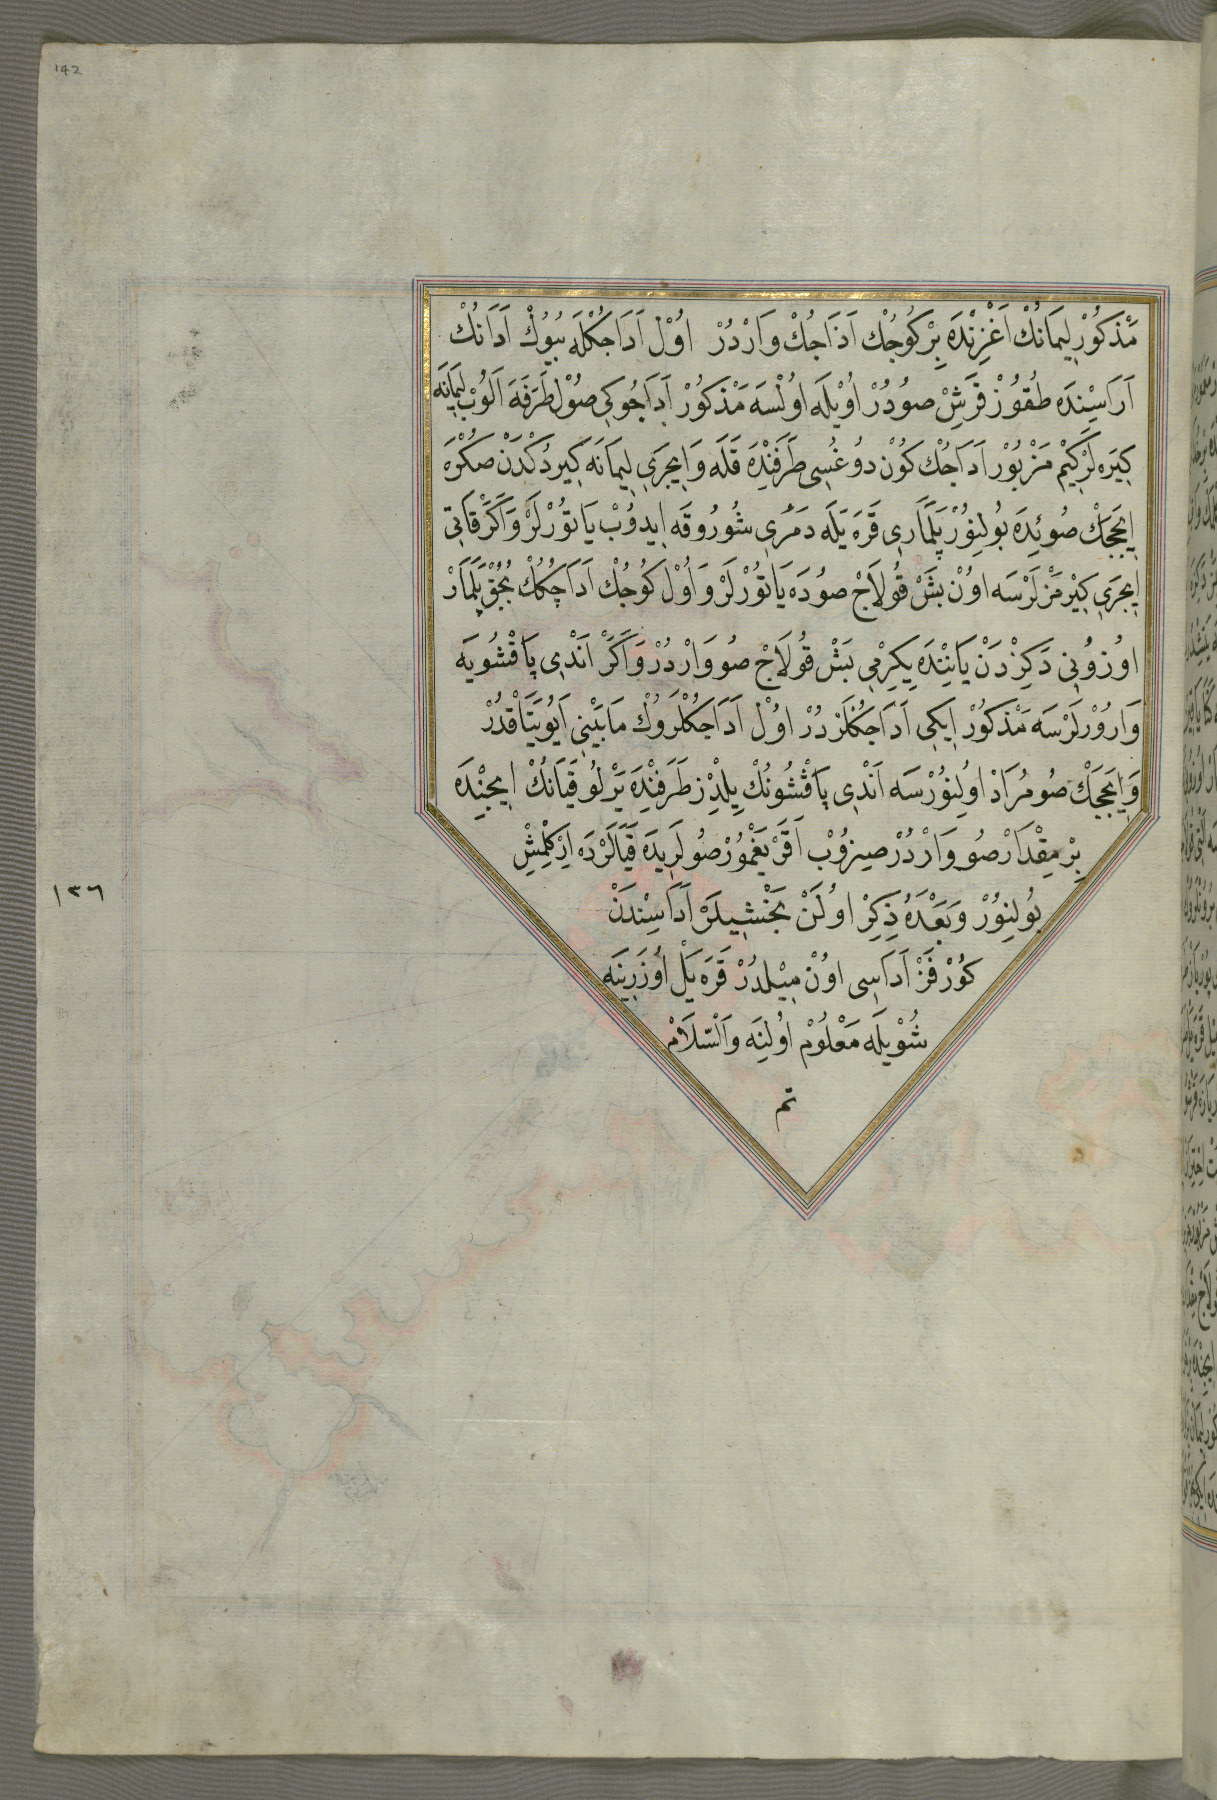 142
مَذْكُوْرْ لِيمَانُكْ اَغْزِنْدَه بِرْ كُوجُكْ اَدَاجُكْ وَارْدُرْ اُوْلْ اَدَاجُكْلَه بِيُوكْ اَدَانُكْ
اَرَاسِنْدَه طُقُوزْ قَرِشْ صُودُرْ اُوْيلَه اُولْسَه مَذْكُورْ اَدَاجُوكِي صُولْ طَرَفَه اَلُوبْ لِيمَانَه
كِيرَه لَرْ كِيمْ مَزْبُورْ اَدَاجُكْ كُونْ دُوغُسِي طَرَفِنْدَه قَلَه وَاِيچَرِي لِيمَانَه كِيرْدُكْدَنْ صُكْرَه
اِيچَجَكْ صُوئِدَه بُولِنُورْ پَلَمَارِي قَرَه يَلَه دَمُرِي شُورُوقَه اِيدُوبْ يَاتُورْلَرْ وَاَكَرْ قَاتِي
اِيچَرِي كِيرْمَزْلَرْسَه اُونْ بَشْ قُولَاجْ صُودَه يَاتُورْلَرْ وَاُولْ كُوجُكْ اَدَاجُكُكْ بُچُقْ پَلَمَارْ
اُوزُونِي دَكِزْدَنْ يَانِنْدَه يِكِرْمِي بَشْ قُولَاجْ صُو وَارْدُرْ وَاَكَرْ اَنْدِي پَاقْشُويَه
وَارُورْلَرْسَه مَذْكُورْ اِيكِي اَدَاجُقْلَرْدُرْ اُولْ اَدَاجُكْلَرُوكْ مَابَيْنِي اَيُو يَتَاقْدُرْ
وَاِيچَجَكْ صُو مُرَادْ اُولِنُورْسَه اَنْدِي پَاقْشُونُكْ يِلْدِزْ طَرَفِنْدَه يَرْلُو قَيَانُكْ اِيچِنْدَه
بِرْ مِقْدَارْ صُو وَارْدُرْ صِيزُوبْ اَقَرْ يَغْمُورْ صُولَرِيدَه قَيَالَرْدَه اِرْكِلْمِشْ
بُولِنُورْ وَبَعْدَهُ ذِكِرْ اُولَنْ اَدَاسِنْدَنْ
كُورْفَزْ اَدَاسِي اُونْ مِيلْدُرْ قَرَه يَلْ اُوزَرِينَه
شُويلَه مَعْلُومْ اُولِنَه وَالسَّلَامْ
تم
١٣٦